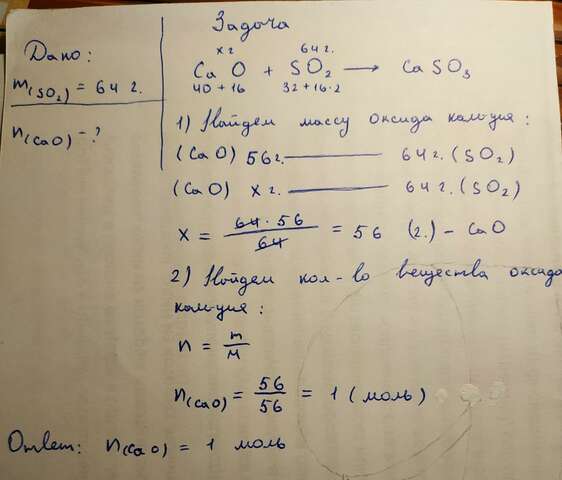 Задача
Дано:
m(SO₂) = 64 г.
n(CaO) - ?
x г 64 г.
CaO + SO₂ → CaSO₃
40+16 32+16·2
1) Найдем массу оксида кальция:
(CaO) 56 г. —— 64 г. (SO₂)
(CaO) x г. —— 64 г. (SO₂)
x = 64 · 56 / 64 = 56 (г.) - CaO
2) Найдем кол-во вещества оксида
кальция:
n = m/M
n(CaO) = 56/56 = 1 (моль)
Ответ: n(CaO) = 1 моль